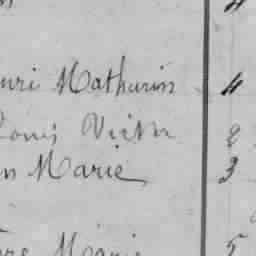 enri Mathurin 4
Louis Victor 2
n Marie 3
re Marie 5